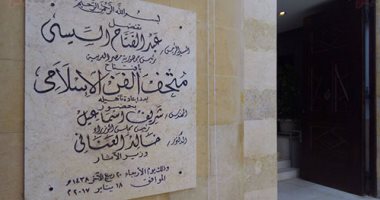 بسم الله الرحمن الرحيم
تفضل
السيد الرئيس / عبد الفتاح السيسي
رئيس جمهورية مصر العربية
بافتتاح
متحف الفن الإسلامي
بعد إعادة تأهيله
بحضور
المهندس / شريف إسماعيل
رئيس مجلس الوزراء
الدكتور / خالد العناني
وزير الآثار
وذلك يوم الأربعاء ٢٠ ربيع الآخر ١٤٣٨هـ
الموافق ١٨ يناير ٢٠١٧م